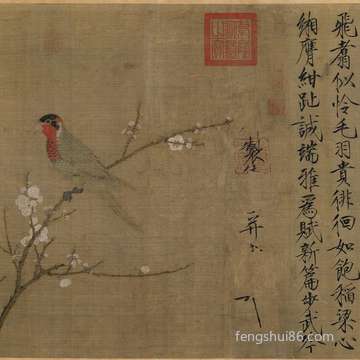 飛翥似怜毛羽貴徘徊如飽稻粱心
緗膺紺趾誠端雅爲賦新篇步武吟
製
并書
fengshui86.com